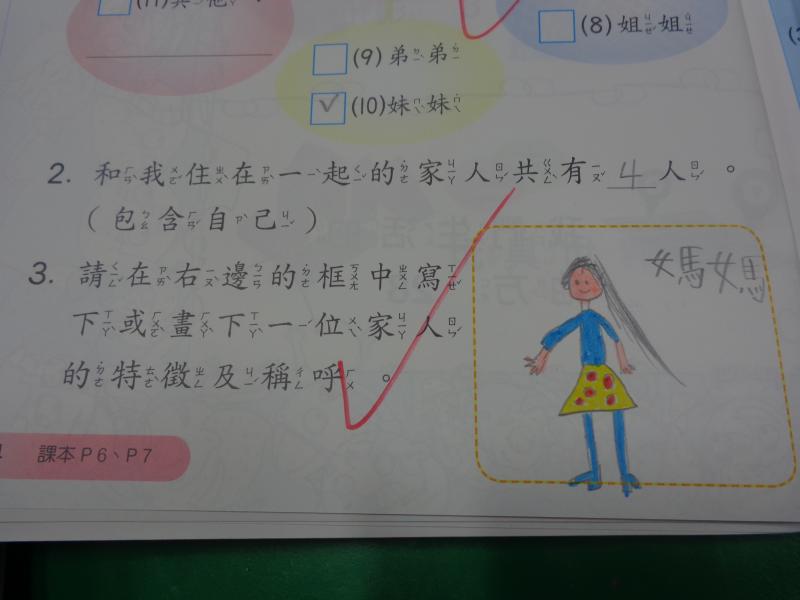 (11)其他
(8)姐姐
(9)弟弟
(10)妹妹
2. 和我住在一起的家人共有4人。
(包含自己)
3. 請在右邊的框中寫
下或畫下一位家人
的特徵及稱呼。
媽媽
課本P6、P7